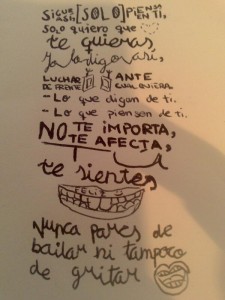 SIGUE ASÍ, [SOLO] PIENSA EN TI,
solo quiero que
te quieras,
Ya lo digo así,
LUCHAR DE FRENTE ANTE CUALQUIERA
- Lo que digan de ti.
- Lo que piensen de ti.
NO TE IMPORTA,
TE AFECTA,
te sientes
FELIZ
Nunca pares de
bailar ni tampoco
de gritar